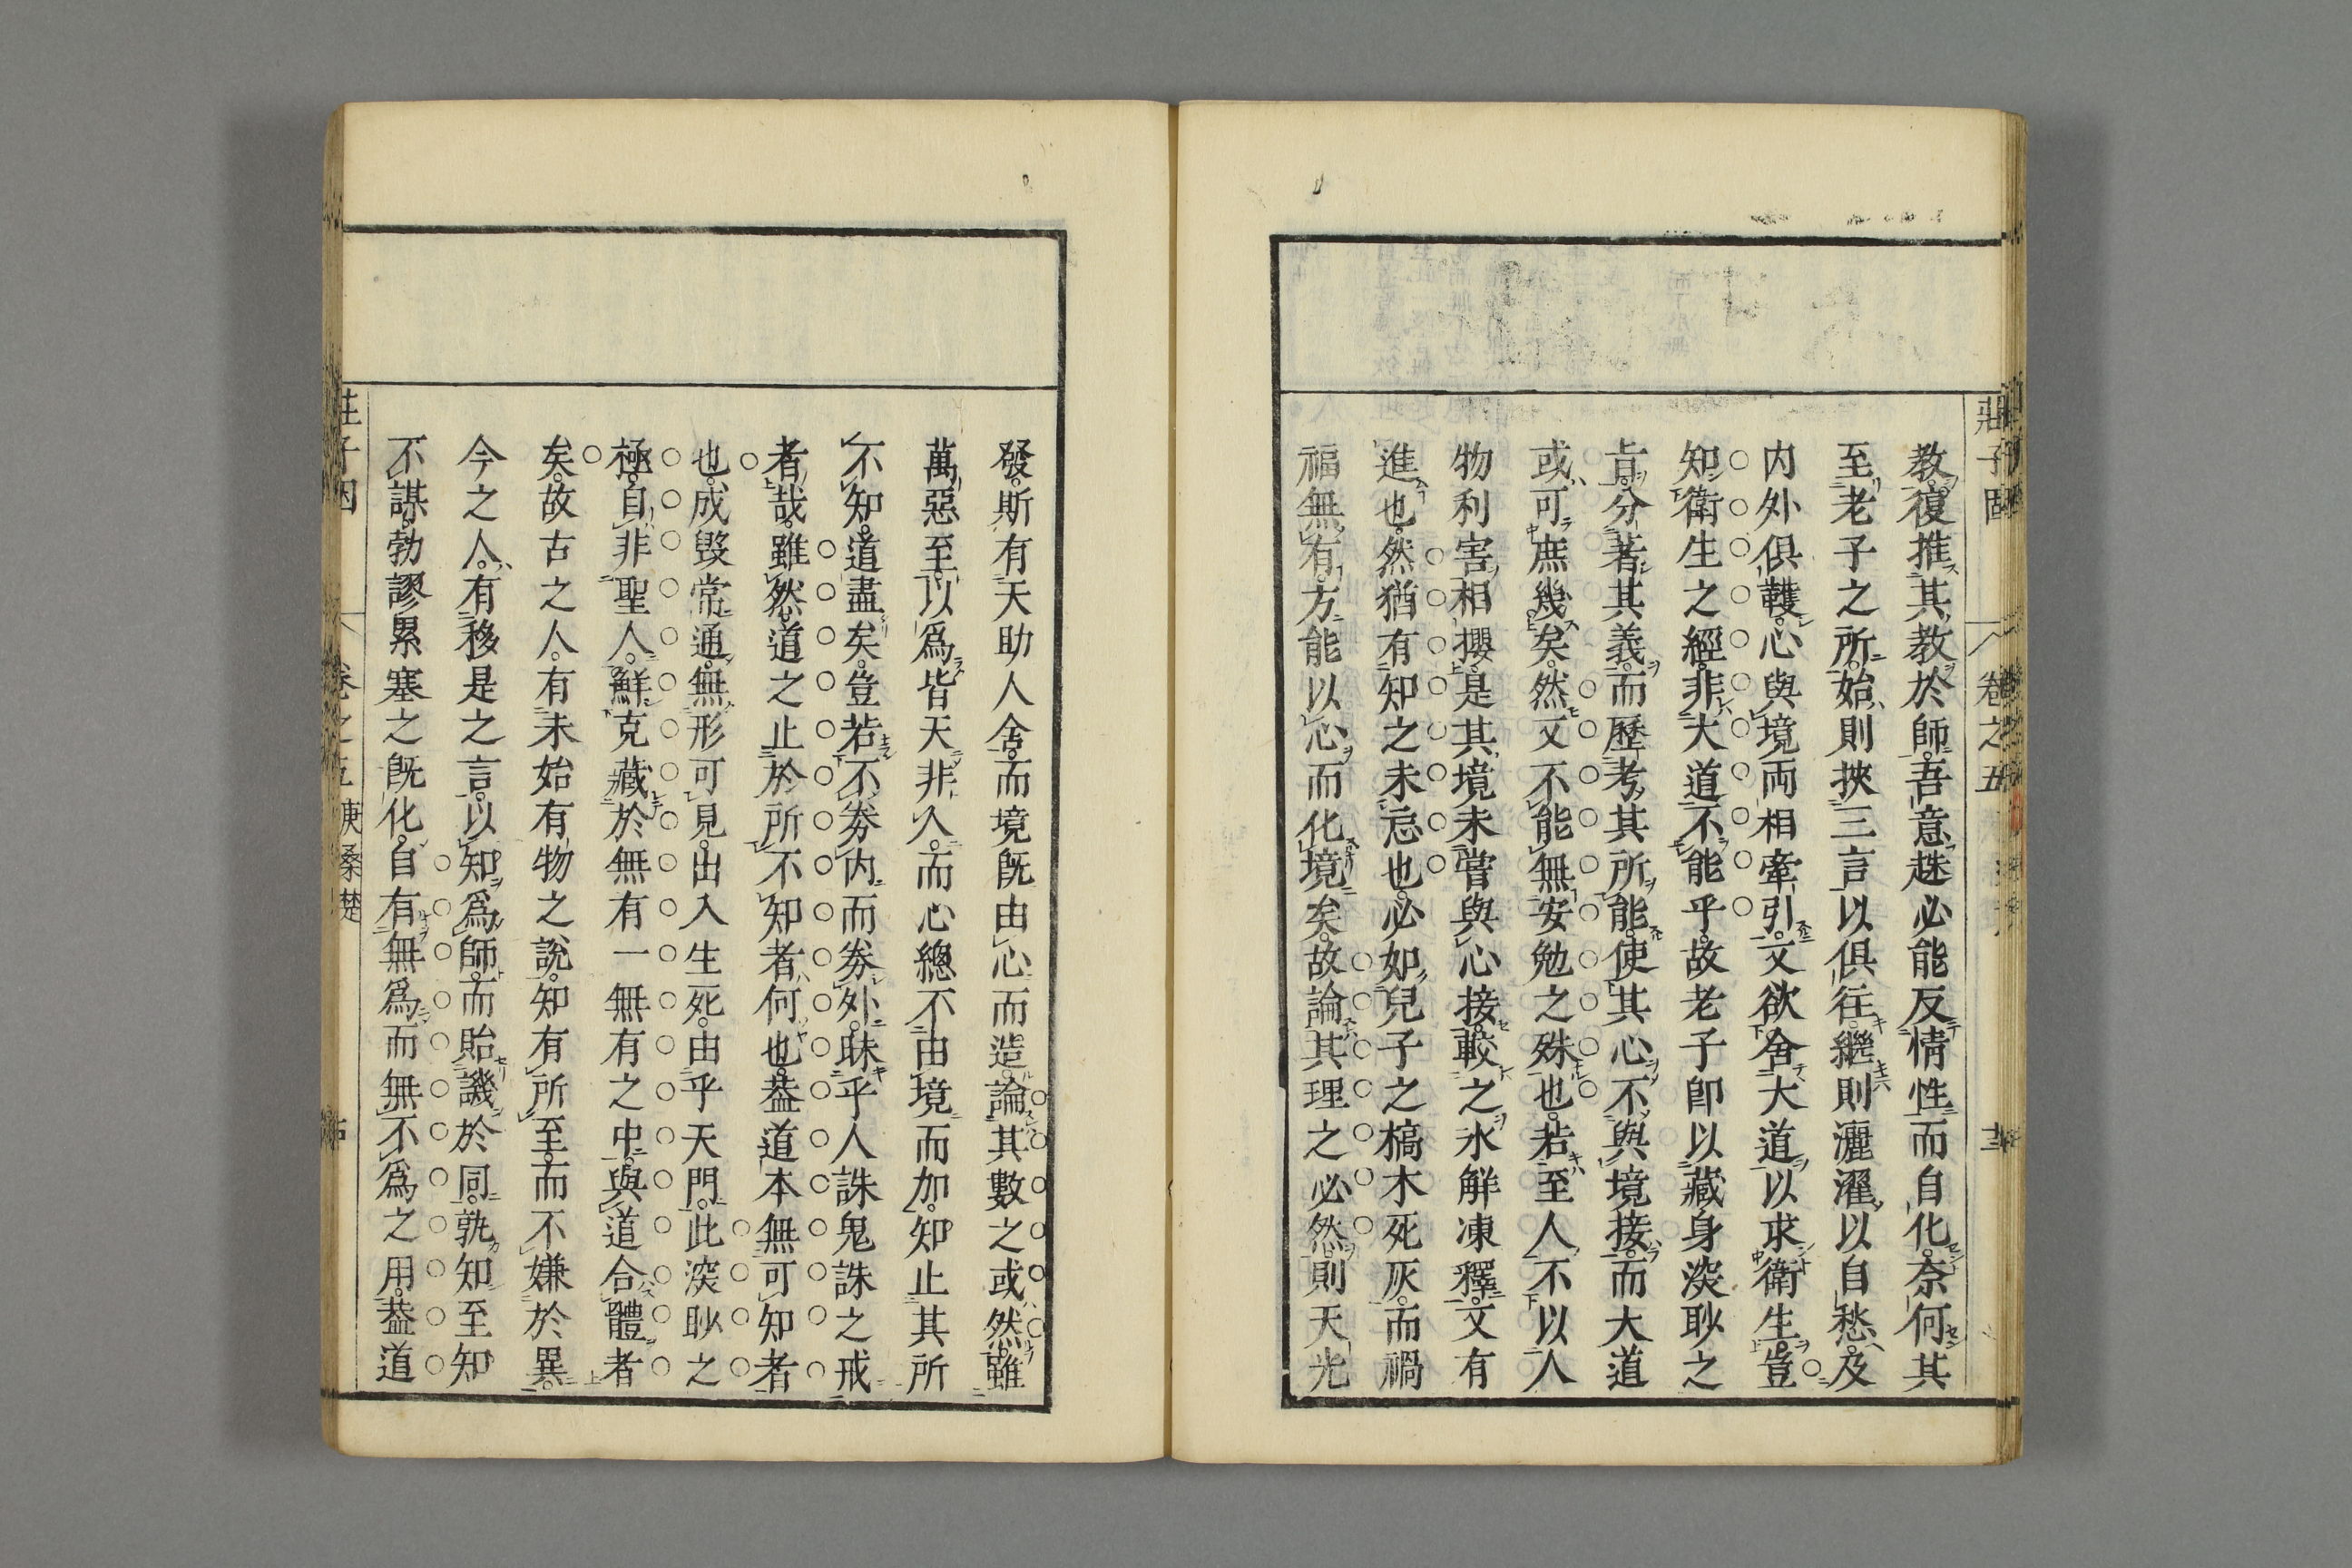 莊子因 卷之五
教。復推其教於師。吾意趎必能反情性而自化。奈何其
至老子之所。始則挾三言以俱往。繼則灑濯以自愁。及
内外俱韄。心與境両相牽引。又欲舍大道以求衛生。豈
知衛生之經。非大道不能乎。故老子卽以藏身深眇之
旨。分著其義。而歷考其所能。使其心不與境接。而大道
或可庶幾矣。然又不能無安勉之殊也。若至人不以人
物利害相攖。是其境未嘗與心接。較之氷觧凍釋。又有
進也。然猶有知之未忘也。必如兒子之槁木死灰。而禍
福無有。方能以心而化境矣。故論其理之必然。則天光
發。斯有天助人舍。而境旣由心而造。論其數之或然。雖
萬惡至。以爲皆天非人。而心總不由境而加。知止其所
不知。道盡矣。豈若不劵内而劵外。昧乎人誅鬼誅之戒
者哉。雖然。道之止於所不知者。何也。葢道本無可知者
也。成毀常通。無形可見。出入生死。由乎天門。此深眇之
極。自非聖人。鮮克藏於無有一無有之中。與道合體者
矣。故古之人。有未始有物之說。知有所至。而不嫌於異。
今之人。有移是之言。以知爲師。而貽譏於同。孰知至知
不謀。勃謬累塞之旣化。自有無爲而無不爲之用。葢道
莊子因 卷之五 庚桑楚